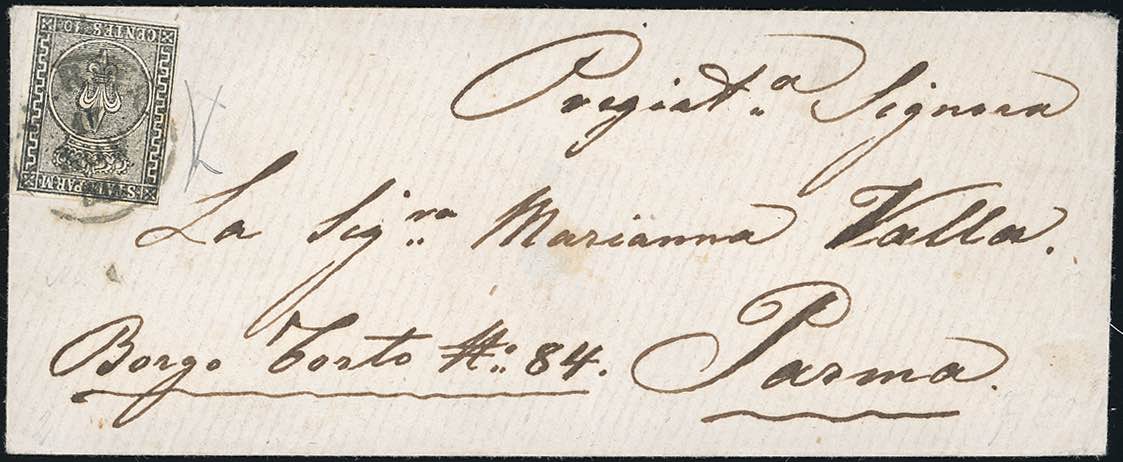 CENTES. 10
STATI PARM
Pregiat.a Signora
La Sig.ra Marianna Valla.
Borgo Torto N.o 84. Parma.